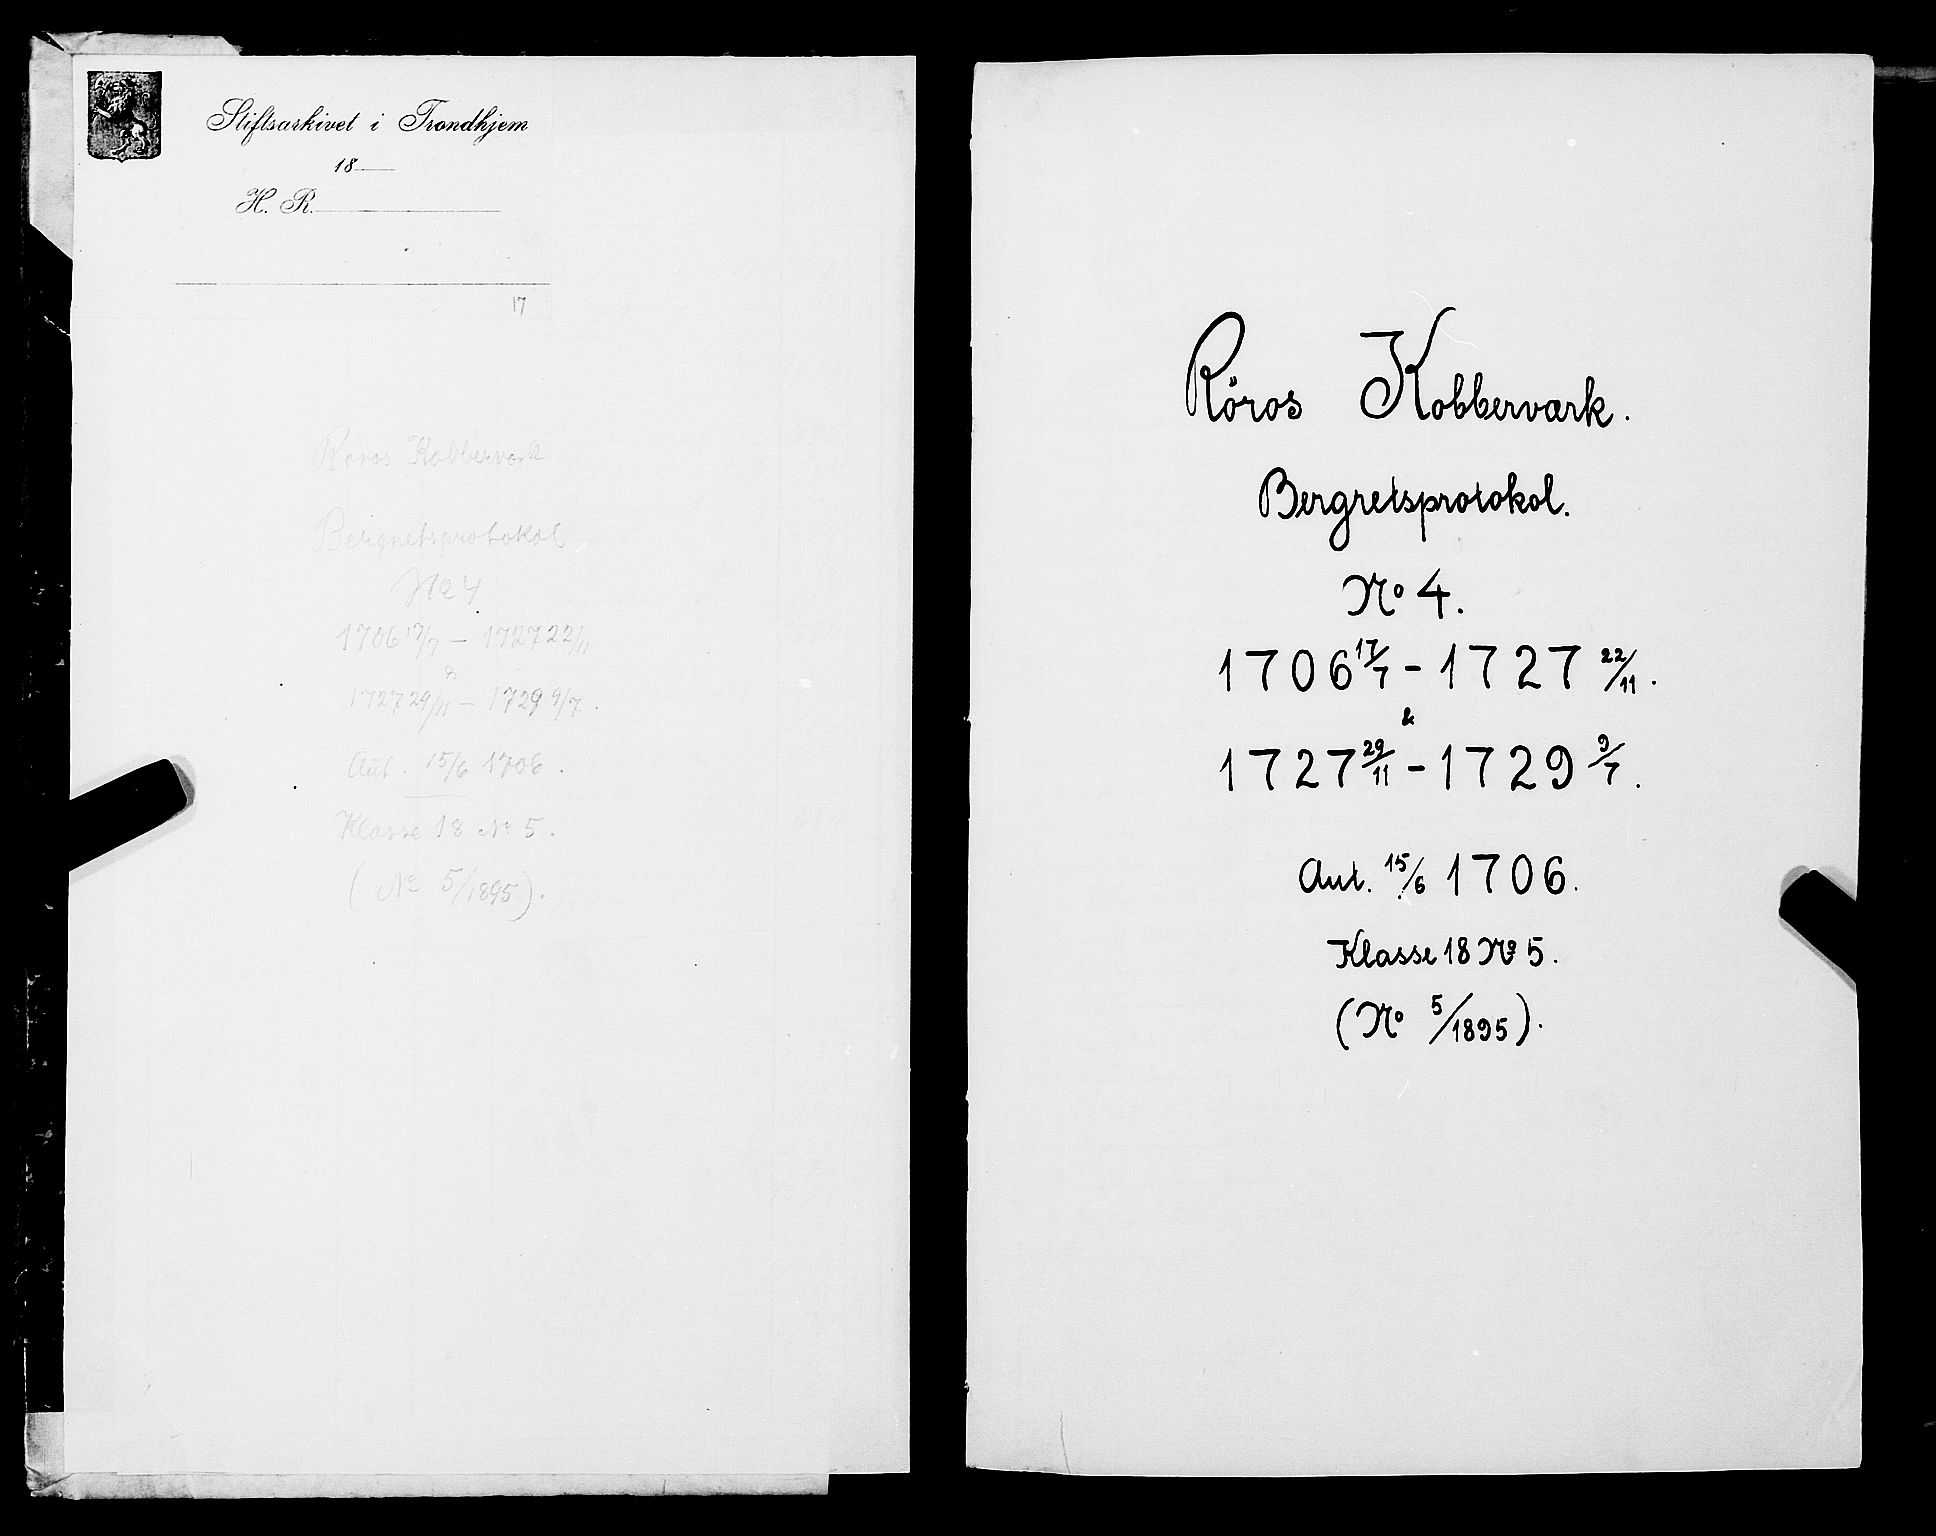 Stiftsarkivet i Trondhjem
18
H. R.
17
Röros Kobberverk
Bergretsprotokol
No 4
1706 17/7 – 1727 22/11
&
1727 29/11 – 1729 9/7.
Aut. 15/6 1706.
Klasse 18 No 5.
(No 5/1895).
Röros Kobberværk.
Bergretsprotokol.
No 4.
1706 17/7 - 1727 22/11.
&
1727 29/11 - 1729 9/7.
Aut. 15/6 1706.
Klasse 18 No 5.
(No 5/1895).